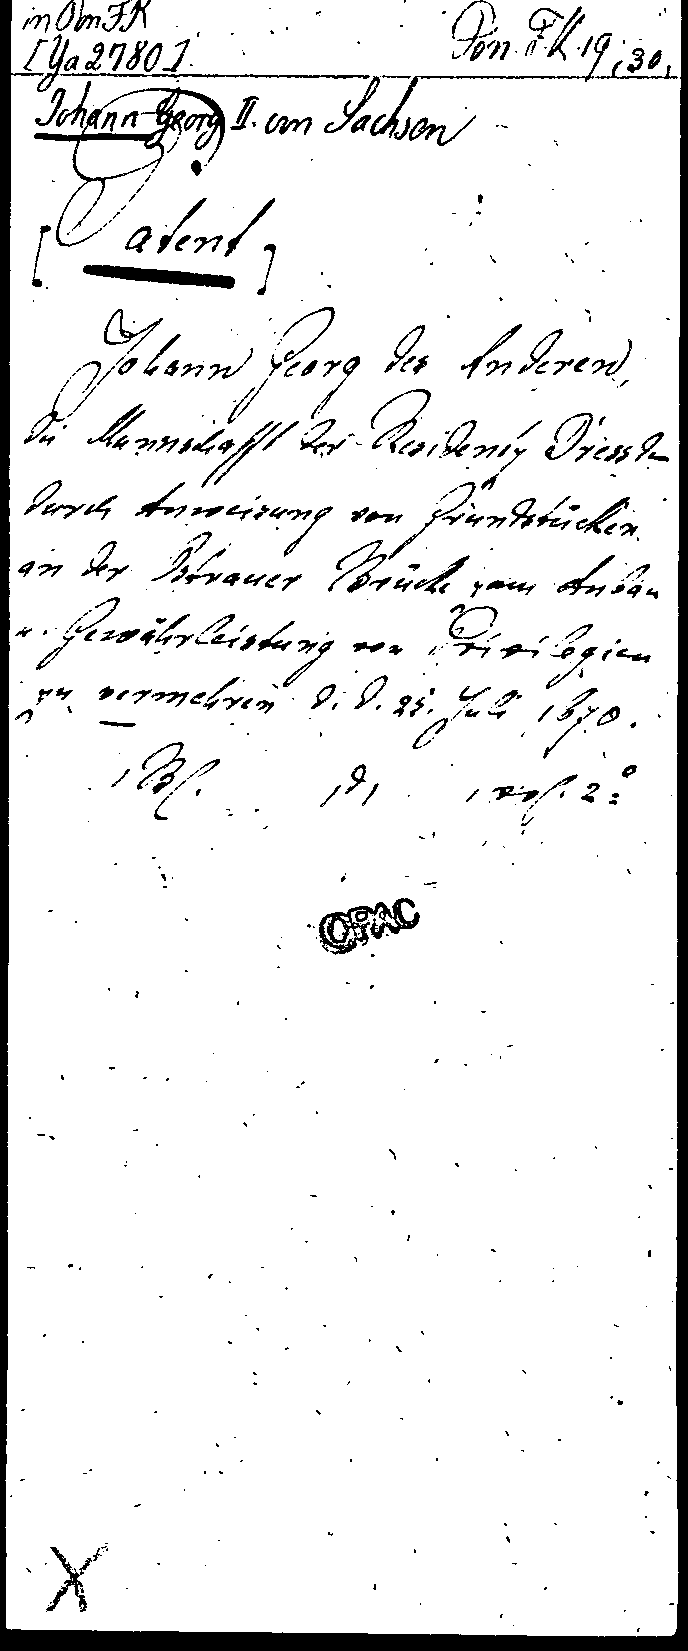 in Obn FK Pon. FK. 19, 30,
[Ya 2780].
Johann Georg II. von Sachsen
[Patent]
Johann Georg des Anderen,
die Mannschafft der Residentz Dressden
durch Anweisung von Grundstücken
an der Ostraer Brücke zum Anbau
u. Gewährleistung von Privilegien
zu vermehren d. d. 25. Juli 1670.
1 Bl. 2°
OPAC
X